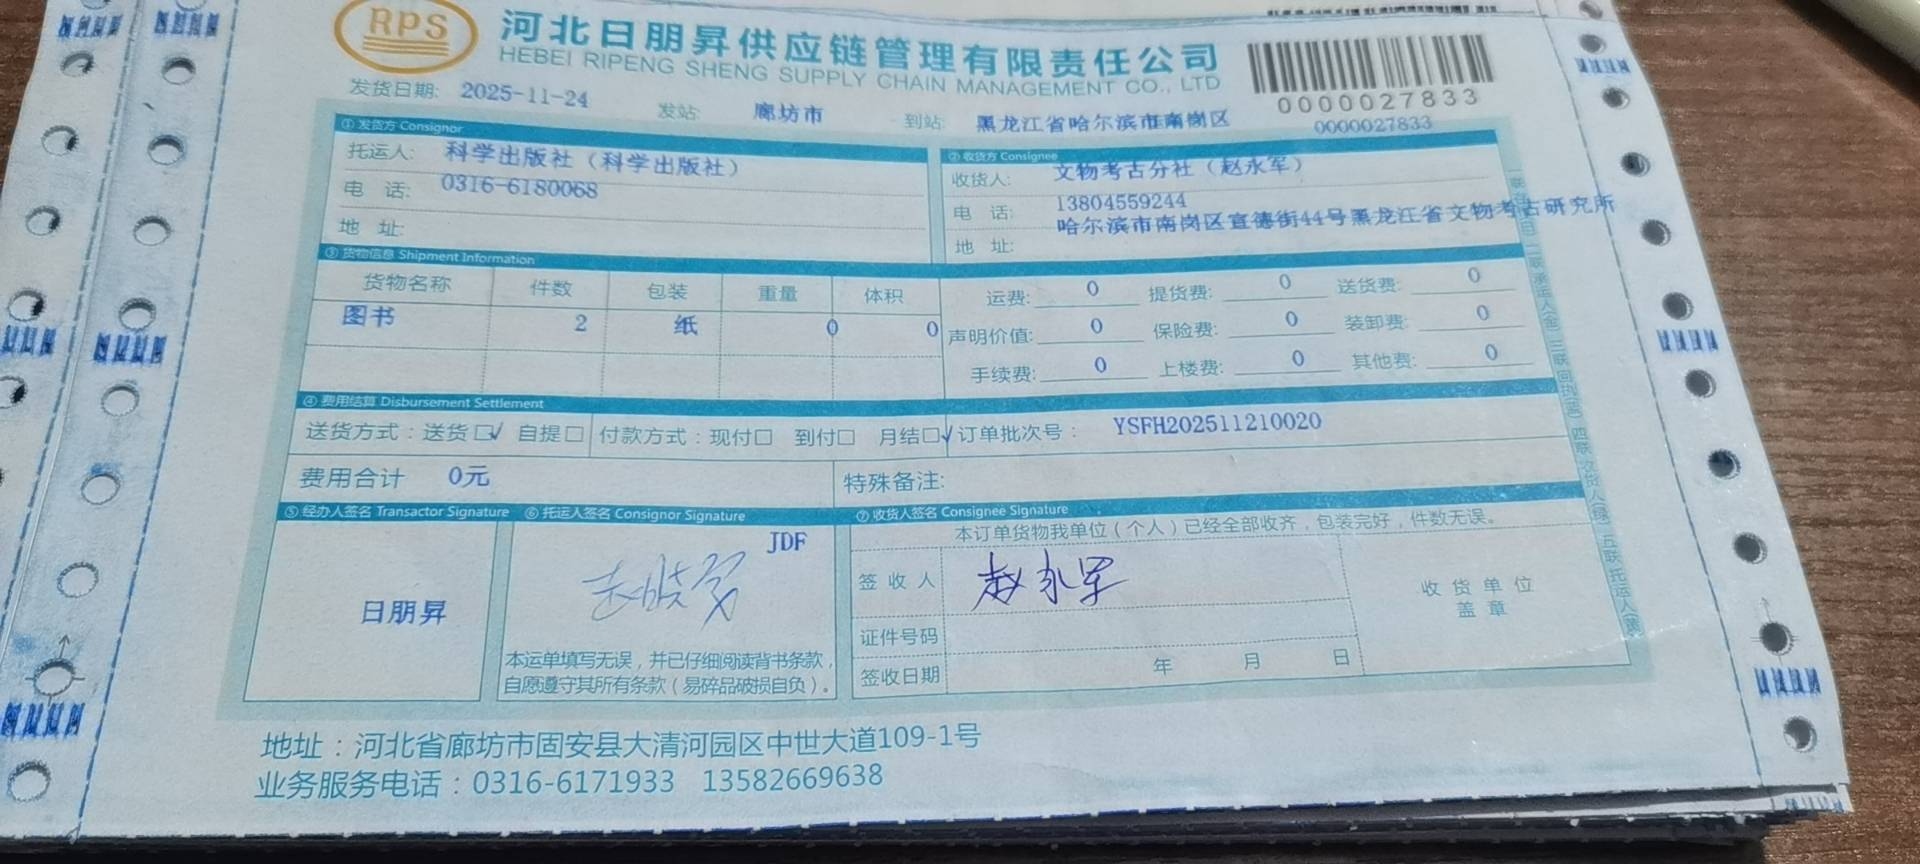 RPS
河北日朋昇供应链管理有限责任公司
HEBEI RIPENG SHENG SUPPLY CHAIN MANAGEMENT CO., LTD
0000027833
0000027833
发货日期: 2025-11-24 发站: 廊坊市 到站: 黑龙江省哈尔滨市南岗区
① 发货方 Consignor
托运人: 科学出版社（科学出版社）
电 话: 0316-6180068
地 址:
② 收货方 Consignee
收货人: 文物考古分社（赵永军）
电 话: 13804559244
地 址: 哈尔滨市南岗区宣德街44号黑龙江省文物考古研究所
③ 货物信息 Shipment Information
货物名称 件数 包装 重量 体积
图书 2 纸 0 0
运费: 0 提货费: 0 送货费: 0
声明价值: 0 保险费: 0 装卸费: 0
手续费: 0 上楼费: 0 其他费: 0
④ 费用结算 Disbursement Settlement
送货方式：送货☐√ 自提☐ 付款方式：现付☐ 到付☐ 月结☐√ 订单批次号： YSFH202511210020
费用合计 0元 特殊备注:
⑤ 经办人签名 Transactor Signature
日朋昇
⑥ 托运人签名 Consignor Signature
JDF
本运单填写无误，并已仔细阅读背书条款，
自愿遵守其所有条款（易碎品破损自负）。
⑦ 收货人签名 Consignee Signature
本订单货物我单位（个人）已经全部收齐，包装完好，件数无误。
签 收 人 赵永军
证件号码
签收日期 年 月 日
收 货 单 位
盖 章
地址：河北省廊坊市固安县大清河园区中世大道109-1号
业务服务电话：0316-6171933 13582669638